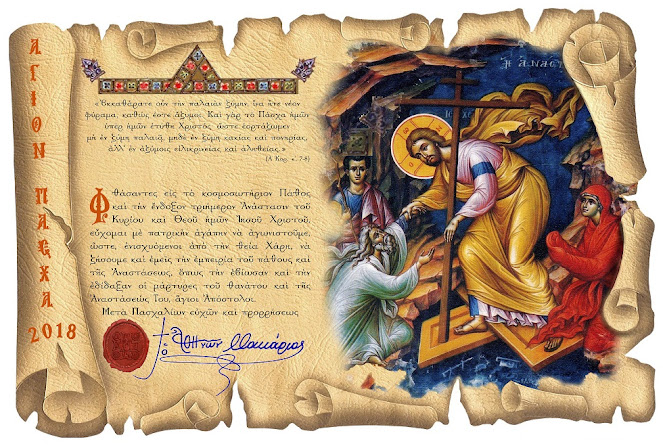 ΑΓΙΟΝ ΠΑΣΧΑ 2018
«Ἐκκαθάρατε οὖν τὴν παλαιὰν ζύμην, ἵνα ἦτε νέον
φύραμα, καθώς ἐστε ἄζυμοι. Καὶ γὰρ τὸ Πάσχα ἡμῶν
ὑπὲρ ἡμῶν ἐτύθη Χριστός, ὥστε ἑορτάζωμεν
μὴ ἐν ζύμῃ παλαιᾷ, μηδὲ ἐν ζύμῃ κακίας καὶ πονηρίας,
ἀλλ' ἐν ἀζύμοις εἰλικρινείας καὶ ἀληθείας.»
(Α Κορ. ε΄ 7-8)
Φθάσαντες εἰς τὸ κοσμοσωτήριον Πάθος
καὶ τὴν ἔνδοξον τριήμερον Ἀνάστασιν τοῦ
Κυρίου καὶ Θεοῦ ἡμῶν Ἰησοῦ Χριστοῦ,
εὔχομαι μὲ πατρικὴν ἀγάπην νὰ ἀγωνιστοῦμε,
ὥστε, ἐνισχυόμενοι ἀπὸ τὴν θεία Χάρι, νὰ
ζήσουμε καὶ ἐμεῖς τὴν ἐμπειρία τοῦ πάθους καὶ
τῆς Ἀναστάσεως, ὅπως τὴν ἐβίωσαν καὶ τὴν
ἐδίδαξαν οἱ μάρτυρες τοῦ θανάτου καὶ τῆς
Ἀναστάσεώς Του, ἅγιοι Ἀπόστολοι.
Μετὰ Πασχαλίων εὐχῶν καὶ προρρήσεως
† ὁ Ἀθηνῶν Μακάριος
Η ΑΝΑΣΤ